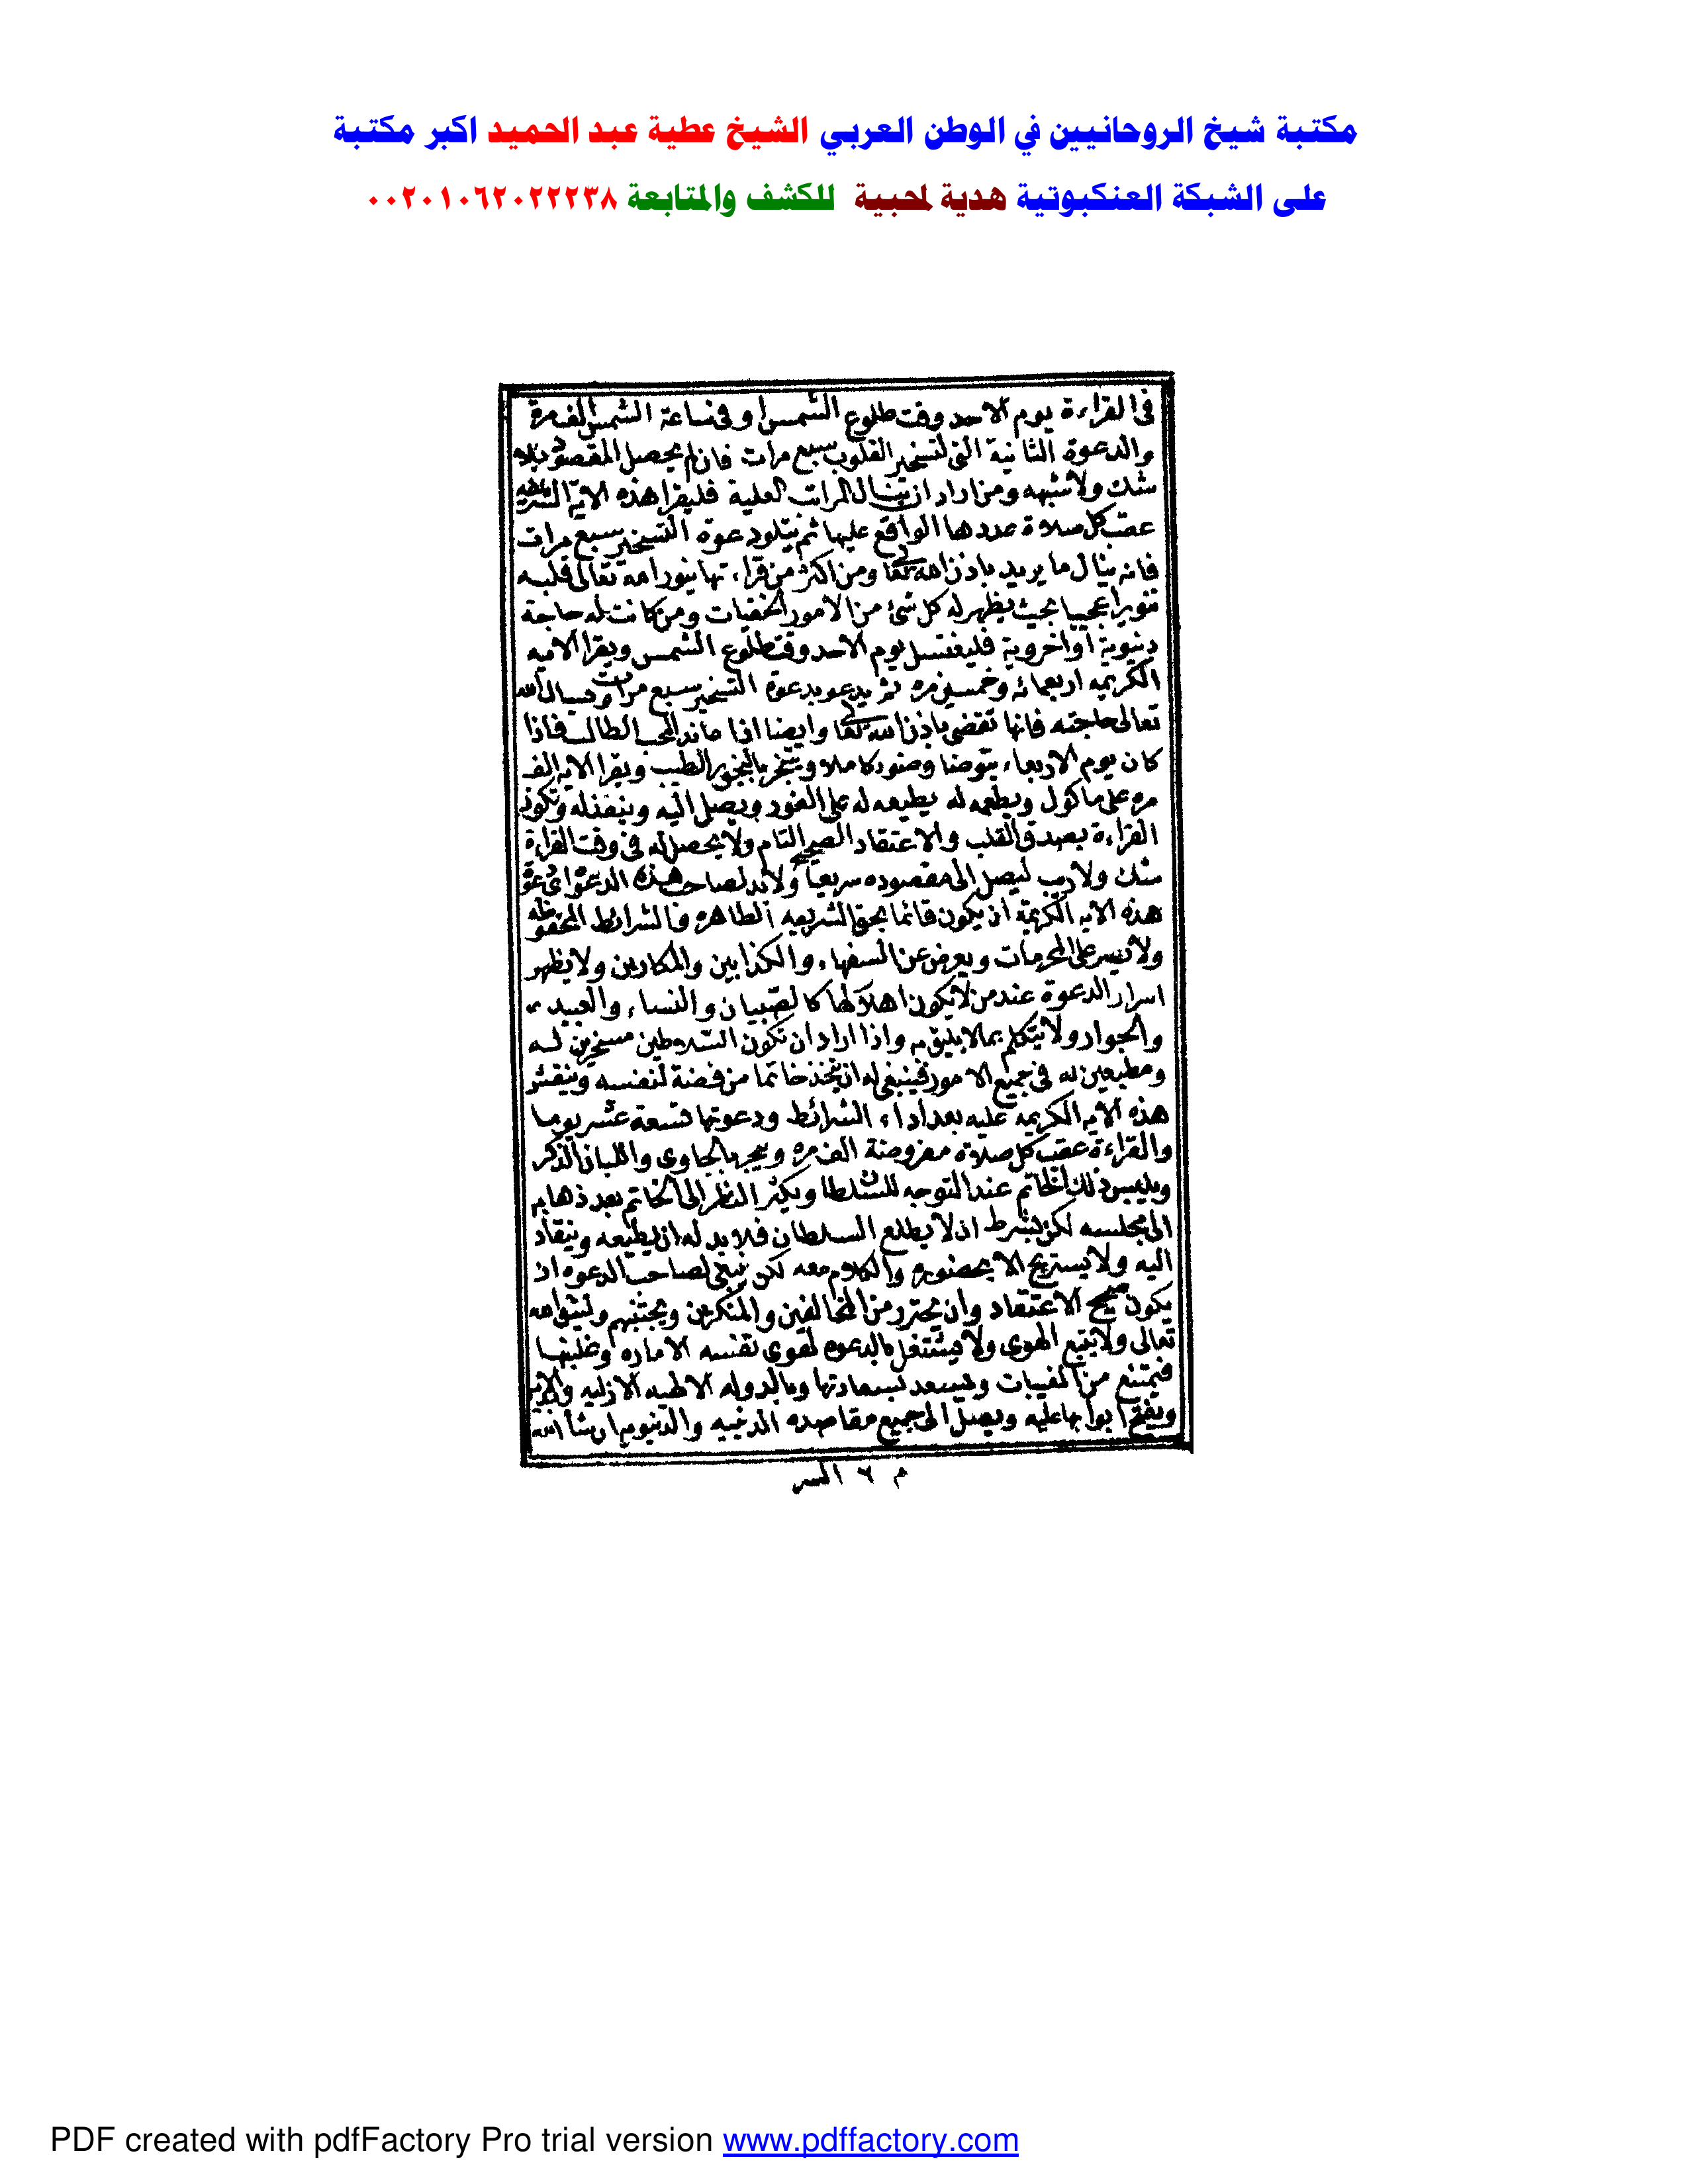 مكتبة شيخ الروحانيين في الوطن العربي الشيخ عطية عبد الحميد اكبر مكتبة
على الشبكة العنكبوتية هدية لمحبية للكشف والمتابعة ٠٠٢٠١٠٦٢٠٢٢٢٣٨
فى القراءة يوم الاحد وقت طلوع الشمس وفى ساعة الشمس الف مرة
والدعوة الثانية التى لتسخير القلوب سبع مرات فان لم يحصل المقصود بلا
شك ولا شبهه ومن اراد ان ينال المراتب العلية فليقرا هذه الاية الشريفه
عقب كل صلاة عددها الواقع عليها ثم يتلو دعوة التسخير سبع مرات
فانه ينال ما يريد باذن الله تعالى ومن اكثر من قراءتها ينور الله تعالى قلبه
تنويرا عجيبا بحيث يظهر له كل شئ من الامور الخفيات ومن كانت له حاجة
دنيوية أو اخروية فليغتسل يوم الاحد وقت طلوع الشمس ويقرا الايه
الكريمه اربعمائه وخمسين مره ثم يدعو بدعوة التسخير سبع مرات ويسال الله
تعالى حاجته فانها تقضى باذن الله تعالى وايضا اذا الطالب فاذا
كان يوم الاربعاء يتوضا وضوء كاملا ويتبخر بالبخور الطيب ويقرا الايه الف
مره على ماكول ويطعمه له يطيعه له على الفور ويصل اليه وينقذ له وتكون
القراءة بصدق القلب والاعتقاد الصحيح التام ولا يحصل له فى وقت القراءة
شك ولا ريب ليصل الى مقصوده سريعا ولا بد لصاحب هذه الدعوة اى دعوة
هذه الايه الكريمة ان يكون قائما بحق الشريعه الطاهره فالشرائط المحفوظه
ولا يسر على المحرمات ويعرض عن السفهاء والكذابين والمكارين ولا يظهر
اسرار الدعوة عند من لا يكون اهلا لها كالصبيان والنساء والعبيد
والجوار ولا يتكلم بما لا يليق به واذا اراد ان تكون السلاطين مسخرين له
ومطيعين له فى جميع الامور فينبغى له ان يتخذ خاتما من فضة لنفسه وينقش
هذه الايه الكريمه عليه بعد أداء الشرائط ودعوتها تسعة عشر يوما
والقراءة عقب كل صلاة مفروضة الف مره ويبخر بالجاوى واللبان الذكر
ويلبس ذلك الخاتم عند التوجه للسلطان ويكثر النظر الى الخاتم بعد ذهابه
الى مجلسه لكن بشرط ان لا يطلع السلطان فلا بد له ان يطيعه وينقاد
اليه ولا يستريح الا بحضوره والكلام معه لكن ينبغى لصاحب الدعوه ان
يكون صحيح الاعتقاد وان يحترز من المخالفين والمنكرين ويجتنبهم وليتق الله
تعالى ولا يتبع الهوى ولا يشتغل بالدعوه لهوى نفسه الاماره وغلبتها
فيمتنع من المغيبات وليسعد بسعادتها وبالدوله الالهيه الازليه والابديه
ويفتح ابوابها عليه ويصل الى جميع مقاصده الدينيه والدنيويه ان شأ الله
م ٦ السر
PDF created with pdfFactory Pro trial version www.pdffactory.com